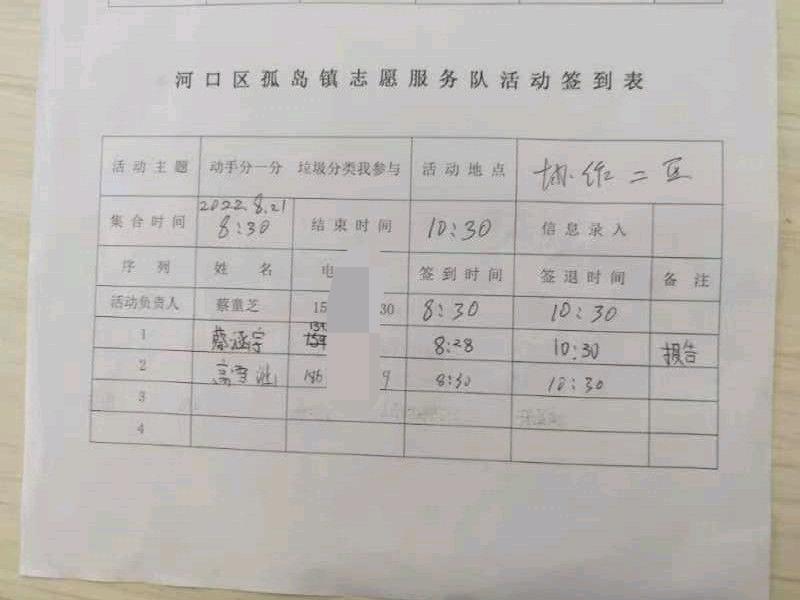 河口区孤岛镇志愿服务队活动签到表
活动主题 动手分一分 垃圾分类我参与 活动地点 协作二区
集合时间 2022.8.21 8:30 结束时间 10:30 信息录入
序列 姓名 电 签到时间 签退时间 备注
活动负责人 蔡童芝 15 30 8:30 10:30
1 蔡涵宇 8:28 10:30 报告
2 高雪 186 9 8:30 10:30
3
4